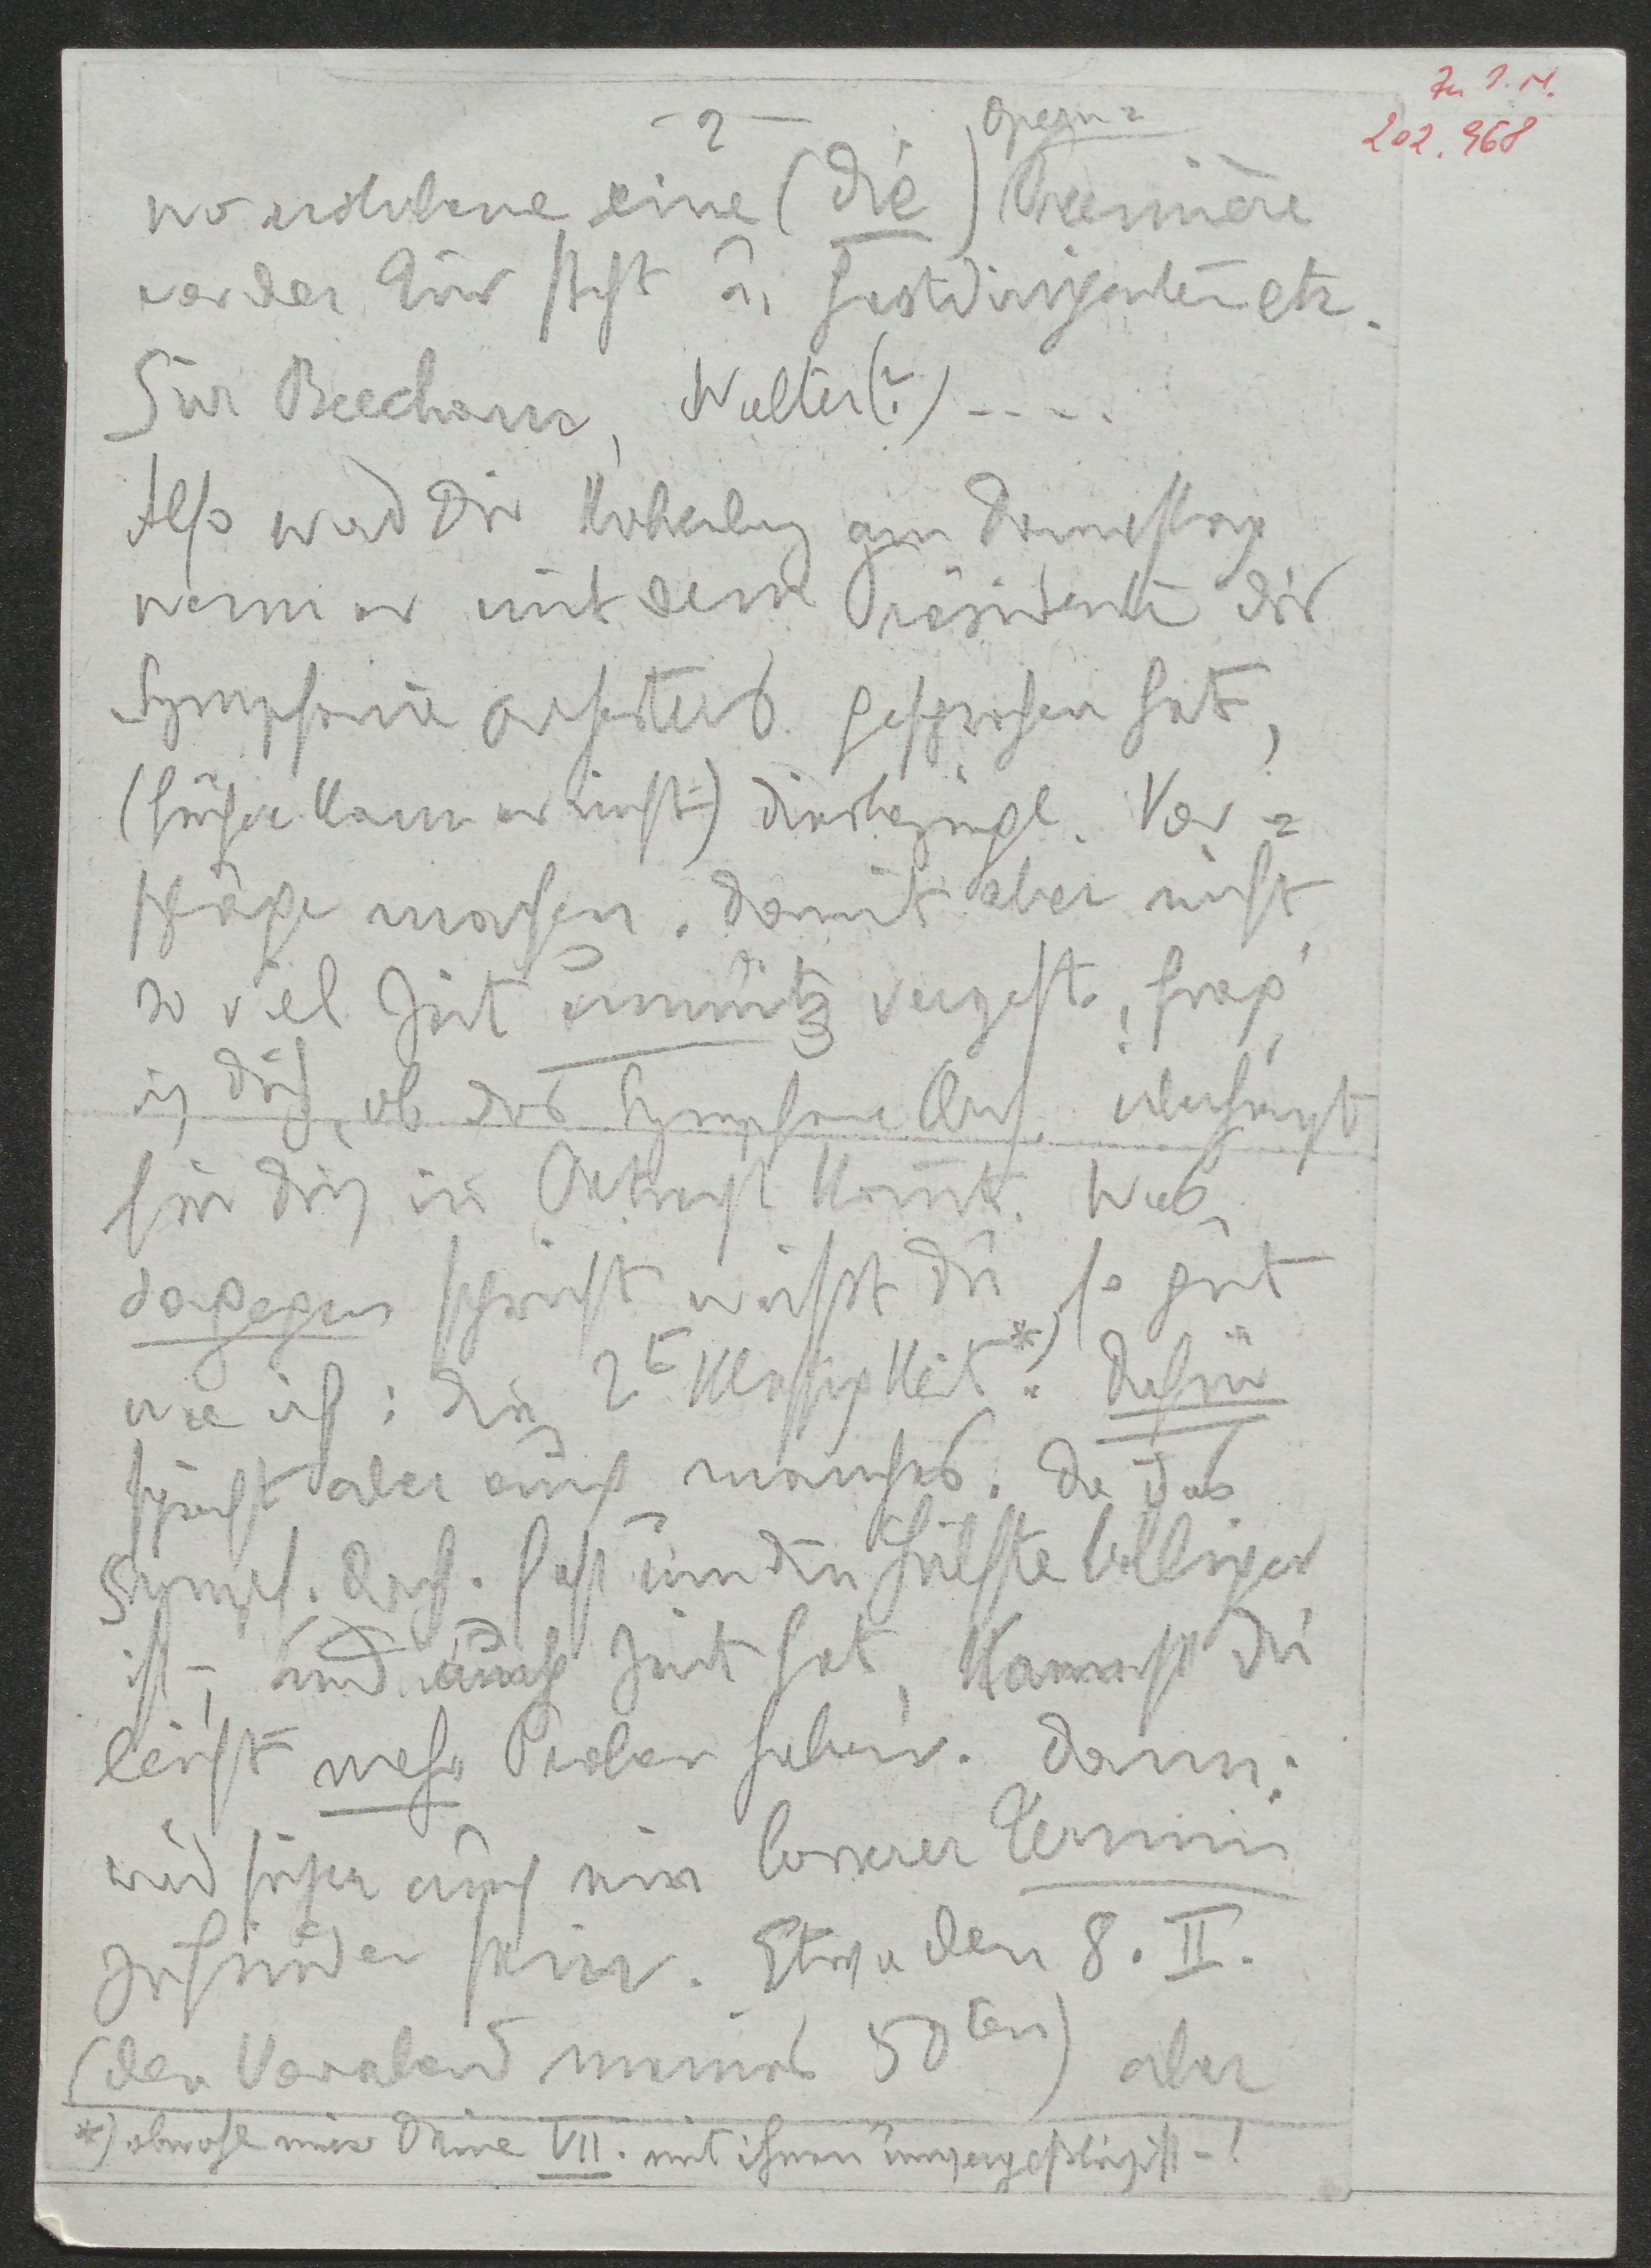 Zu I.N.
202.968
- 2 -
Opern=
wo nochdazu eine (die) Premiere
vor der Tür steht u. Gastdirigenten etc.
Sir Beecham, Walter(?) ....
Also wird Dir Kobald am Donnerstag
wenn er mit dem Präsidenten des
Symphonieorchesters gesprochen hat,
(früher kann er nicht) diesbezügl. Vor=
schläge machen. Damit aber nicht
so viel Zeit unnütz vergeht, frag'
ich Dich, ob das Symphonie Orch. überhaupt
für Dich in Betracht kommt. Was
dagegen spricht weißt Du so gut
wie ich: die 2t Klassigkeit*). Dafür
spricht aber auch manches. Da das
Symph. Orch. fast um die Hälfte billiger
ist, und auch Zeit hat, kannst Du
leicht mehr Proben haben. Dann:
wird sicher auch ein besserer Termin
zu finden sein. Etwa den 8. II.
(den Vorabend meines 50ten) aber
*) obwohl mir Deine VII. mit ihnen unvergeßlich ist -!